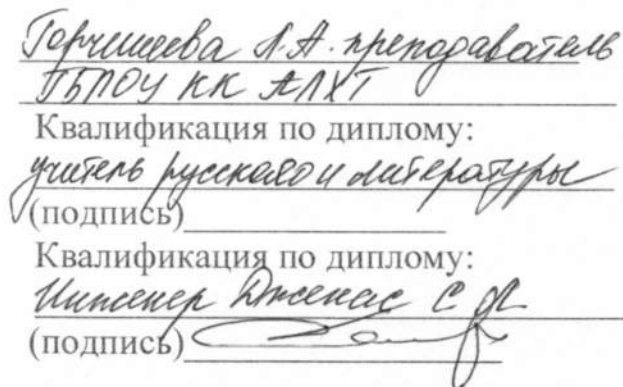 Горчищева Л.А. преподаватель
ГБПОУ КК АЛХТ
Квалификация по диплому:
учитель русского и литературы
(подпись)
Квалификация по диплому:
Инженер Дженас С
(подпись)